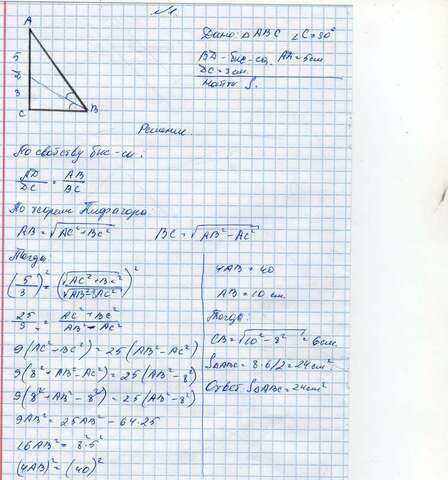 №1
A
5
D
3
C
B
Дано: △ABC ∠C=90°
BD - бис-са, AD=5см
DC=3см.
Найти S.
Решение
По свойству бис-сы:
AD/DC = AB/BC
По теореме Пифагора
AB=√(AC²+BC²) BC=√(AB²-AC²)
Тогда
(5/3)² = (√(AC²+BC²)/√(AB²-AC²))²
25/9 = (AC²+BC²)/(AB²-AC²)
9(AC²+BC²)=25(AB²-AC²)
9(8²+AB²-AC²)=25(AB²-8²)
9(8²+AB²-8²)=25(AB²-8²)
9AB²=25AB²-64·25
16AB²=8²·5²
(4AB)²=(40)²
4AB=40
AB=10 см.
Тогда
CB=√(10²-8²)=6см.
S△ABC=8·6/2=24см²
Ответ S△ABC=24см²